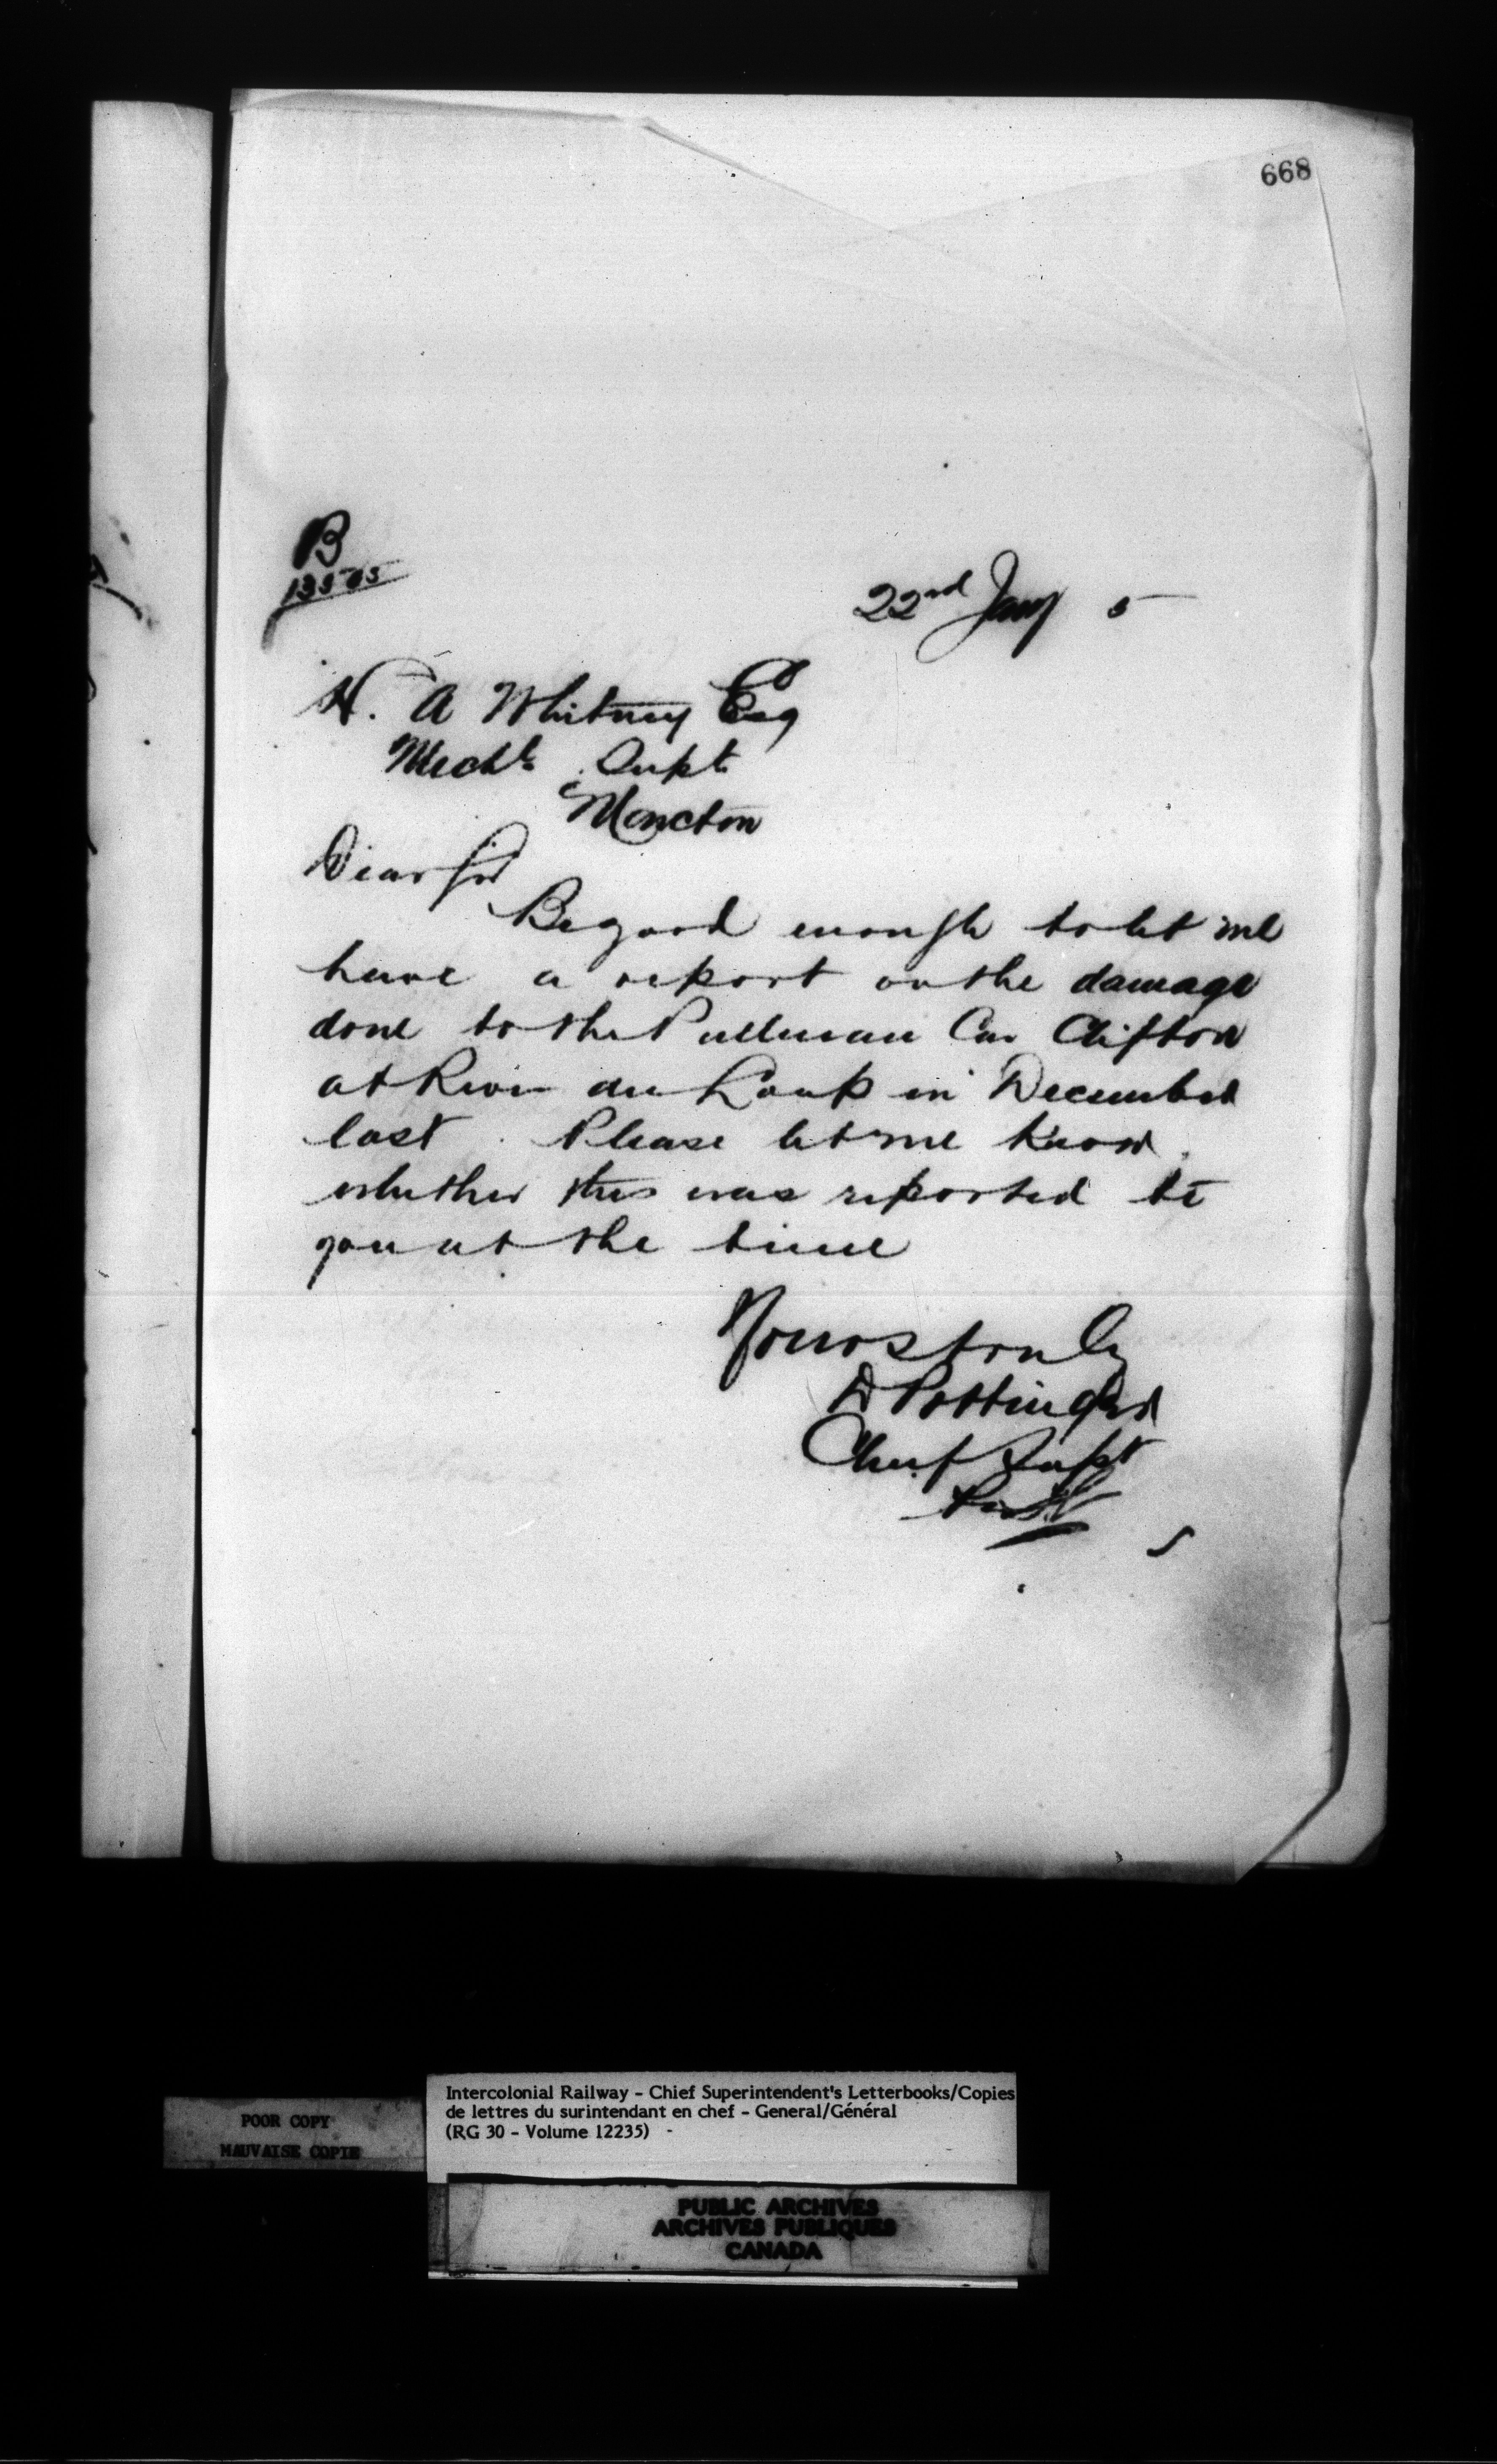 668
B
13505
22nd Jany 5
H. A Whitney Esq
Mechl Supt
Moncton
Dear Sir
Be good enough to let me
have a report on the damage
done to the Pullman Car Clifton
at River du Loup in December
last. Please let me know
whether this was reported to
you at the time
Yours truly
D Pottinger
Chief Supt
POOR COPY
MAUVAISE COPIE
Intercolonial Railway - Chief Superintendent's Letterbooks/Copies
de lettres du surintendant en chef - General/Général
(RG 30 - Volume 12235) -
PUBLIC ARCHIVES
ARCHIVES PUBLIQUES
CANADA